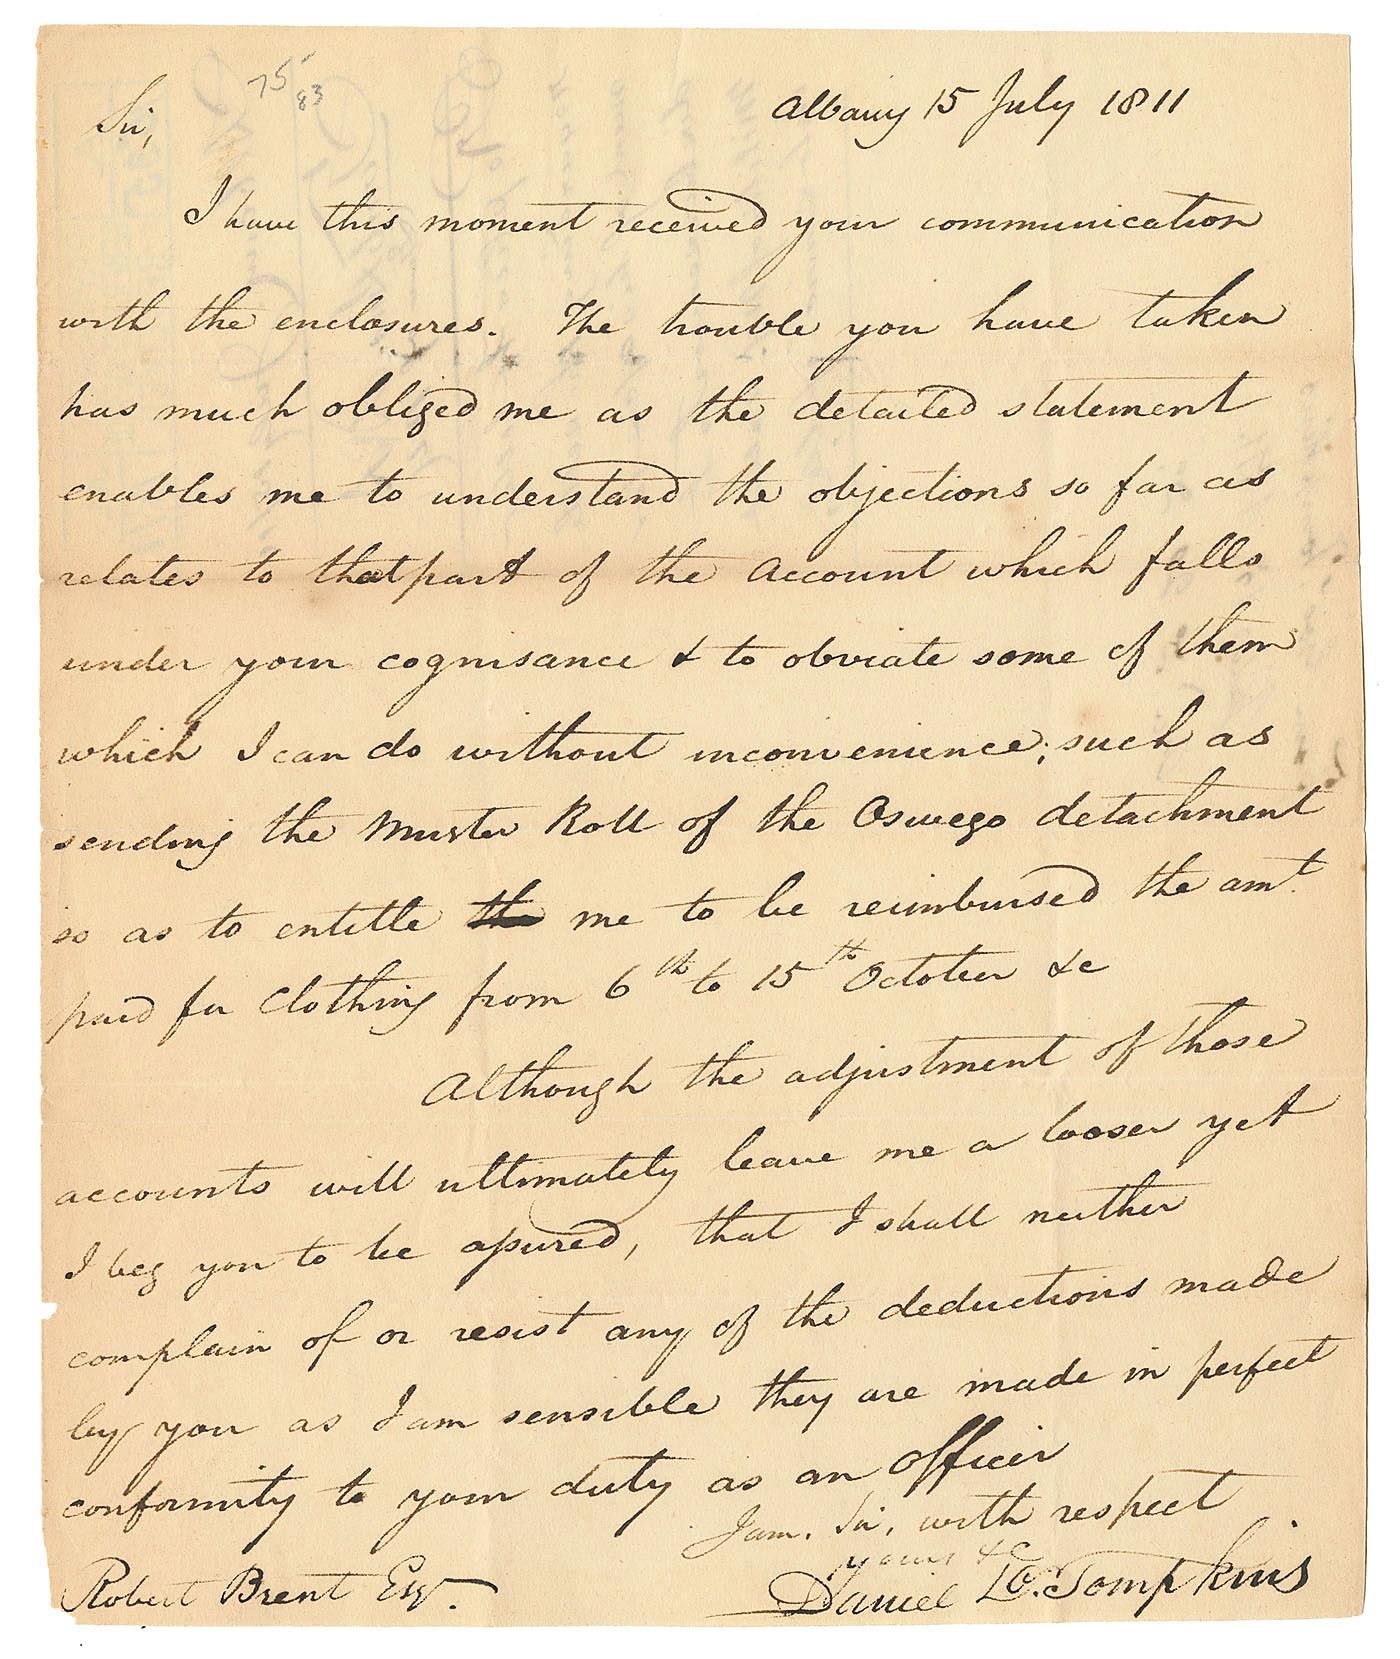 75
83
Albany 15 July 1811
Sir,
I have this moment received your communication
with the enclosures. The trouble you have taken
has much obliged me as the detailed statement
enables me to understand the objections so far as
relates to that part of the Account which falls
under your cognisance & to obviate some of them
which I can do without inconvenience; such as
sending the Muster Roll of the Oswego detachment
so as to entitle the me to be reimbursed the amt.
paid for Clothing from 6th to 15th October &c
Although the adjustment of those
accounts will ultimately leave me a looser yet
I beg you to be assured, that I shall neither
complain of or resist any of the deductions made
by you as I am sensible they are made in perfect
conformity to your duty as an Officer
I am, Sir, with respect
yours &c
Daniel D. Tompkins
Robert Brent Esqr.